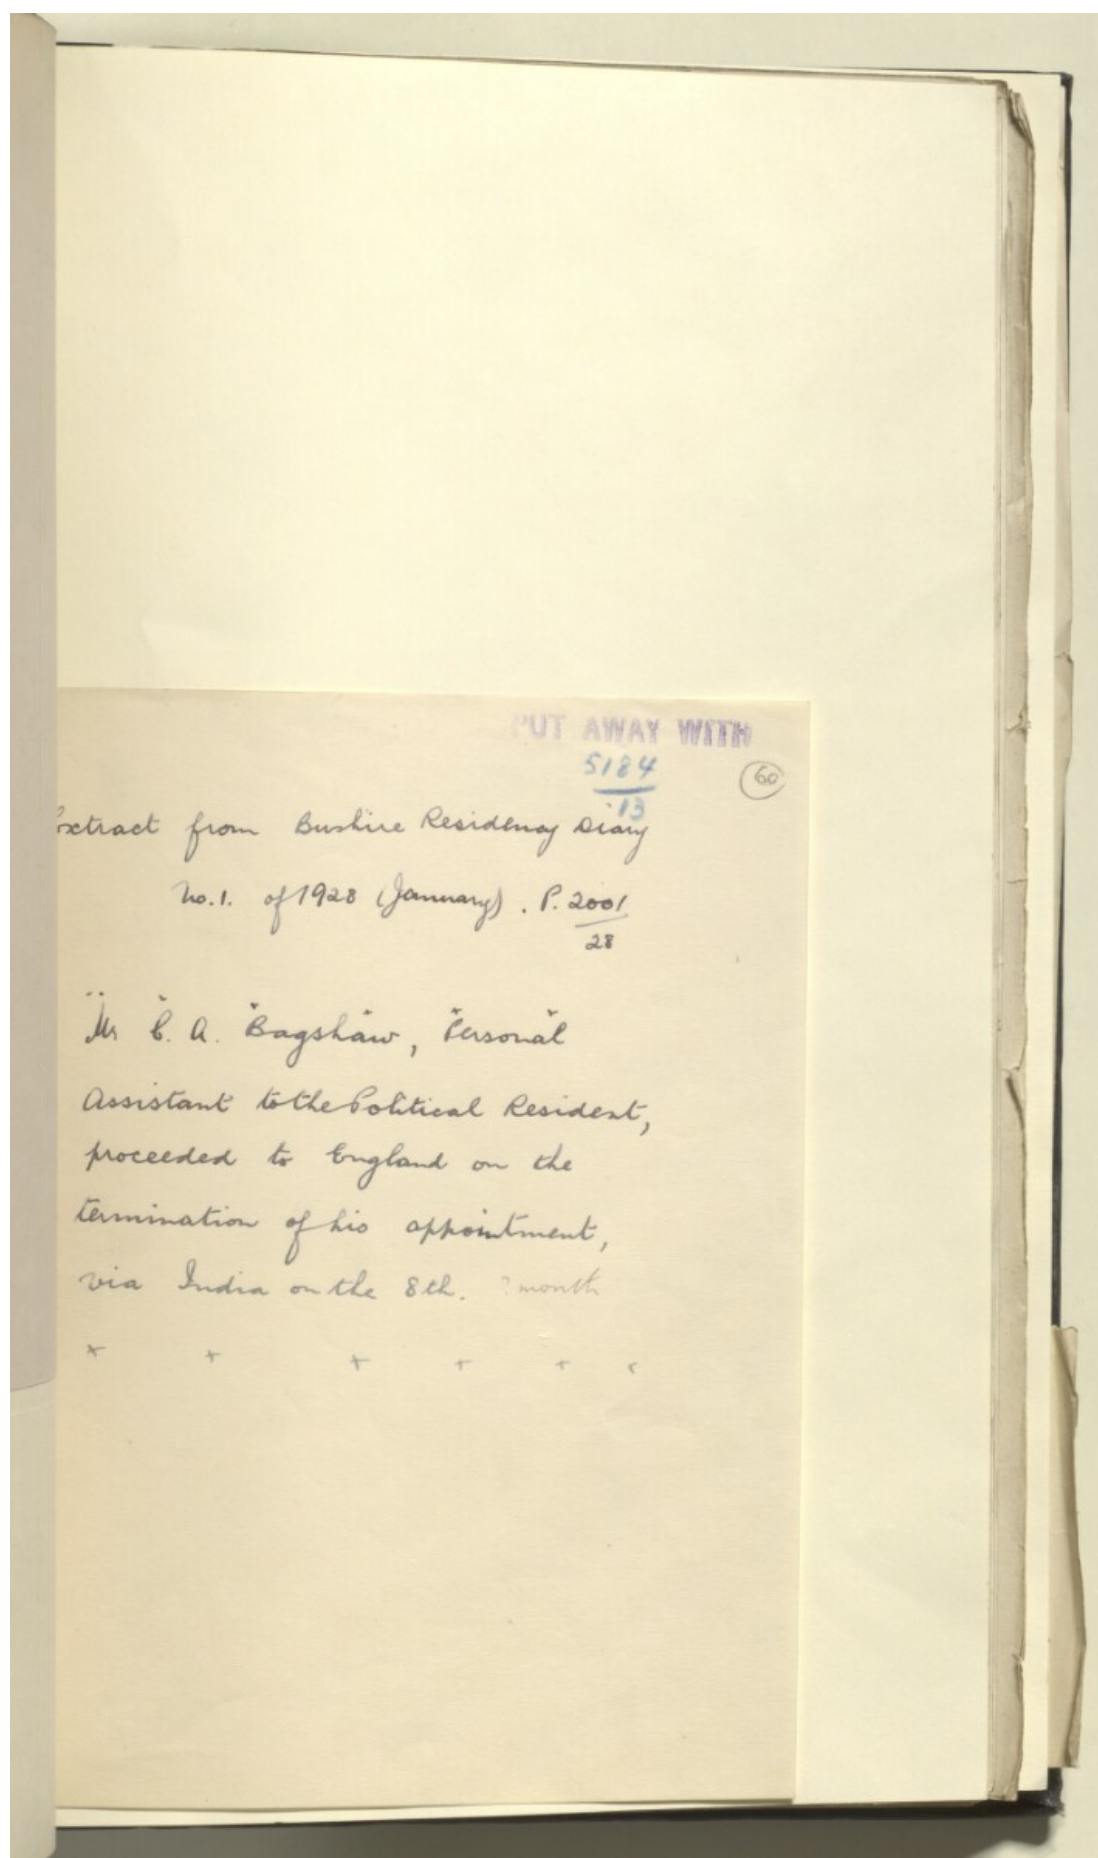 PUT AWAY WITH
5184
13
60
Extract from Bushire Residency Diary
No. 1. of 1928 (January). P. 2001
28
Mr C. A. Bagshaw, Personal
Assistant to the Political Resident,
proceeded to England on the
termination of his appointment,
via India on the 8th. ? month
x x x x x